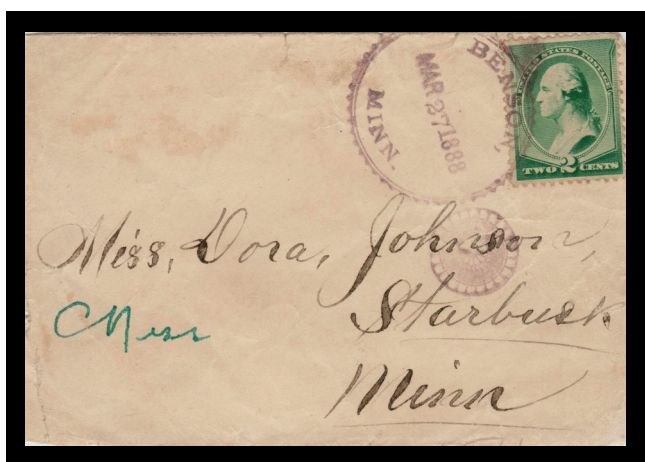 BENSON,
MAR 27 1888
MINN.
UNITED STATES POSTAGE
TWO 2 CENTS
Miss, Dora, Johnson,
Starbuck
Minn